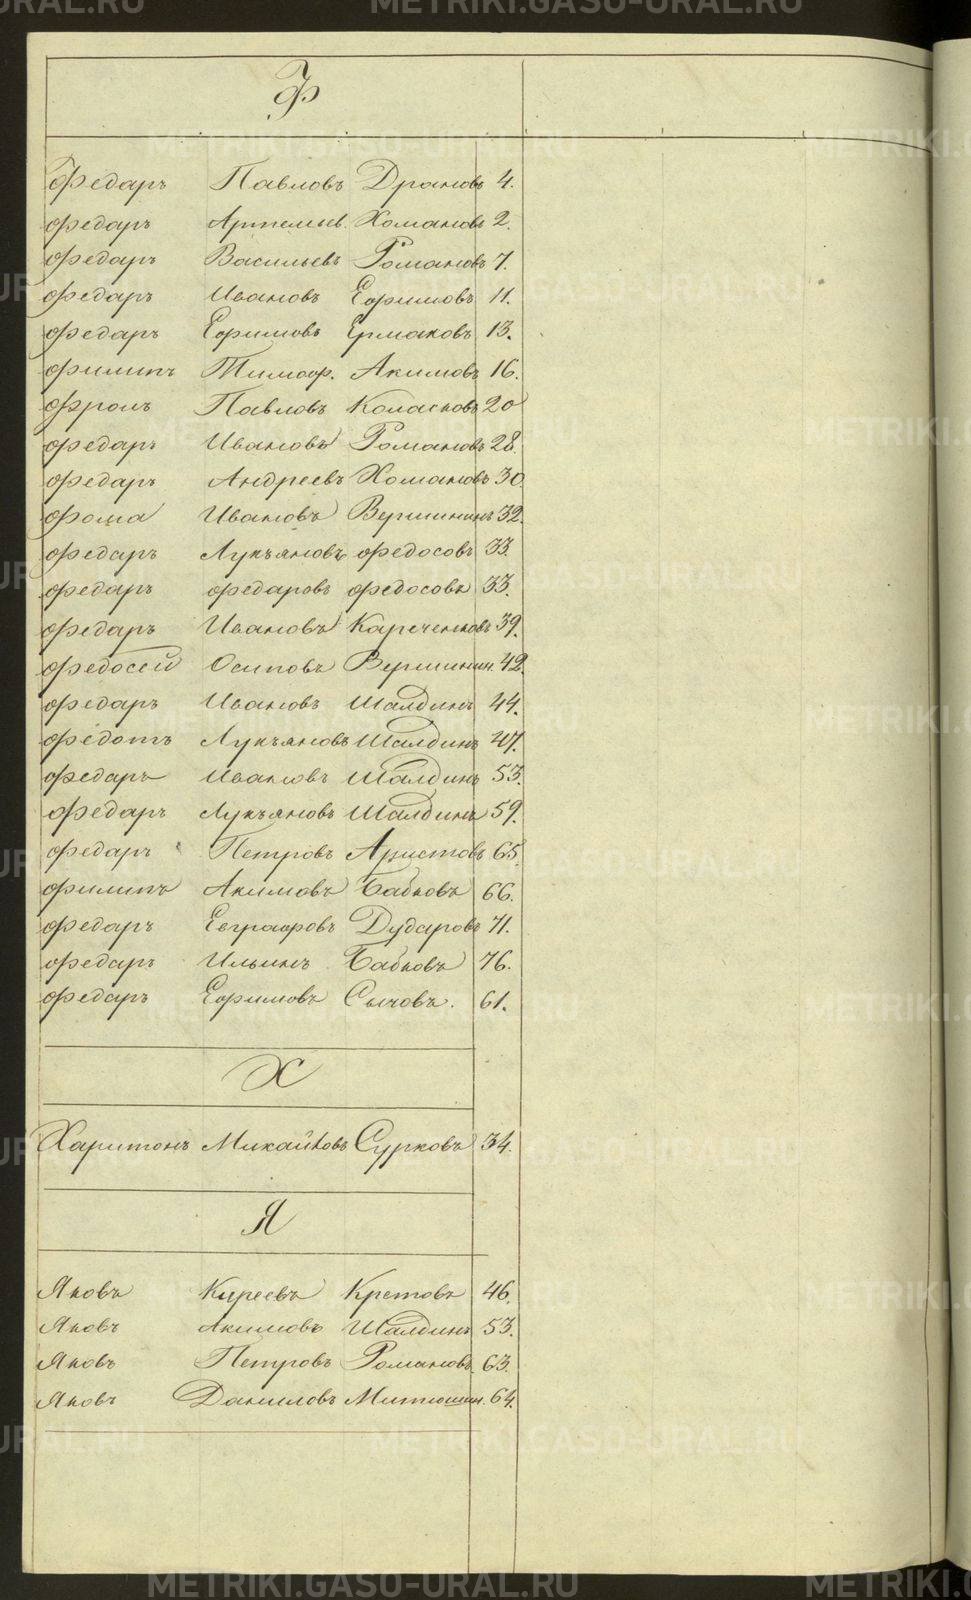 Ф
Федаръ Павловъ Драновъ 4.
Федаръ Артемьев. Хомановъ 2.
Федаръ Васильевъ Романовъ 7.
Федаръ Ивановъ Ефримовъ 11.
Федаръ Ефримовъ Ермаковъ 13.
Филипъ Тимоф. Акимовъ 16.
Фролъ Павловъ Коласковъ 20
Федаръ Ивановъ Романовъ 28.
Федаръ Андреевъ Хомановъ 30.
Фома Ивановъ Вершининъ 32.
Федаръ Лукъяновъ Федосовъ 33.
Федаръ Федаровъ Федосовъ 33.
Федаръ Ивановъ Кареченковъ 39.
Федосей Осиповъ Вершинин. 42.
Федаръ Ивановъ Шалдинъ 44.
Федотъ Лукъяновъ Шалдинъ 47.
Федаръ Ивановъ Шалдинъ 53.
Федаръ Лукъяновъ Шалдинъ 59.
Федаръ Петровъ Аристовъ 65.
Филипъ Акимовъ Бабковъ 66.
Федаръ Евграфровъ Дударовъ 71.
Федаръ Ильинъ Бабковъ 76.
Федаръ Ефримовъ Сычовъ. 61.
Х
Харитонъ Микайловъ Сурковъ 34.
Я
Яковъ Киреевъ Кретовъ 46.
Яковъ Акимовъ Шалдинъ 53.
Яковъ Петровъ Романовъ 63.
Яковъ Даниловъ Митюшин. 64.
METRIKI.GASO-URAL.RU